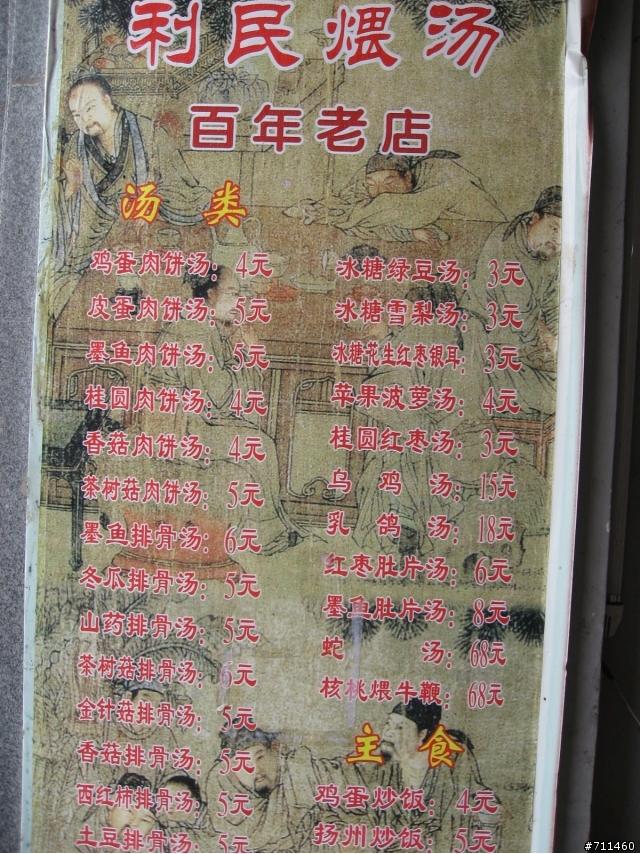 利民煨汤
百年老店
汤类
鸡蛋肉饼汤：4元
皮蛋肉饼汤：5元
墨鱼肉饼汤：5元
桂圆肉饼汤：4元
香菇肉饼汤：4元
茶树菇肉饼汤：5元
墨鱼排骨汤：6元
冬瓜排骨汤：5元
山药排骨汤：5元
茶树菇排骨汤：6元
金针菇排骨汤：5元
香菇排骨汤：5元
西红柿排骨汤：5元
土豆排骨汤：5元
冰糖绿豆汤：3元
冰糖雪梨汤：3元
冰糖花生红枣银耳：3元
苹果菠萝汤：4元
桂圆红枣汤：3元
乌鸡汤：15元
乳鸽汤：18元
红枣肚片汤：6元
墨鱼肚片汤：8元
蛇汤：68元
核桃煨牛鞭：68元
主食
鸡蛋炒饭：4元
扬州炒饭：5元
#711460